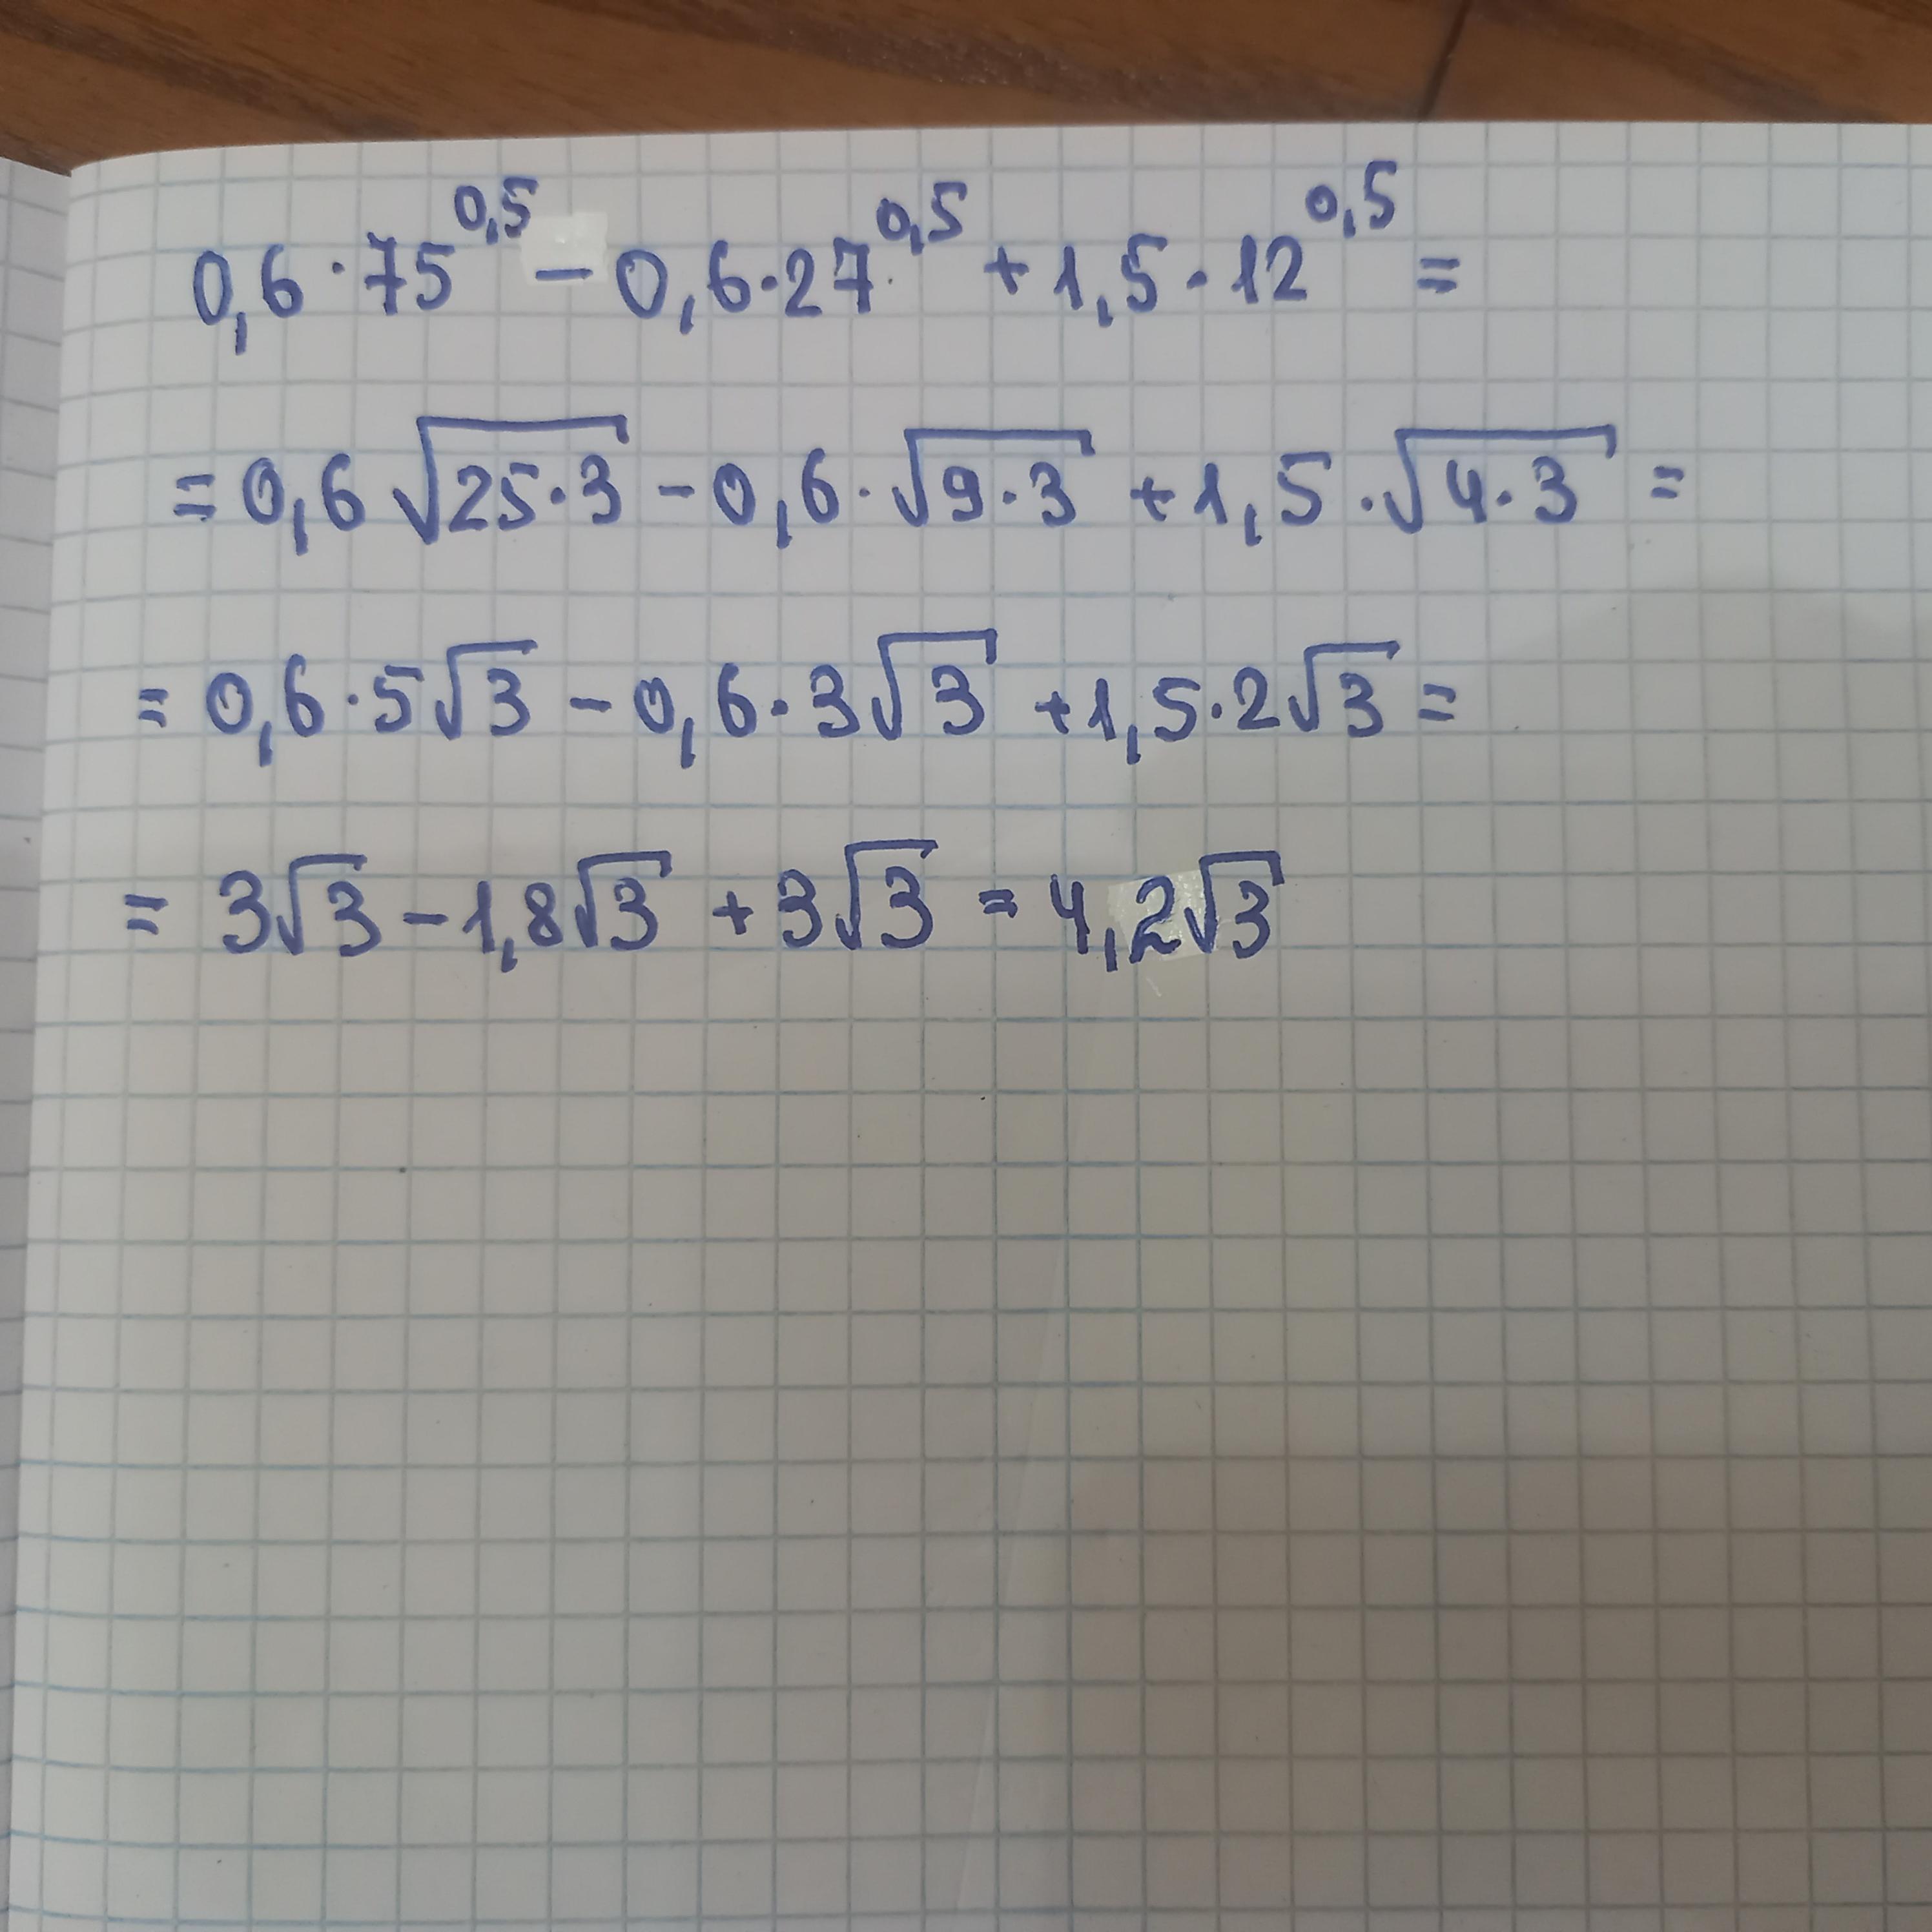 0,6·75^0,5 − 0,6·27^0,5 + 1,5·12^0,5 =
= 0,6 √(25·3) − 0,6·√(9·3) + 1,5·√(4·3) =
= 0,6·5√3 − 0,6·3√3 + 1,5·2√3 =
= 3√3 − 1,8√3 + 3√3 = 4,2√3